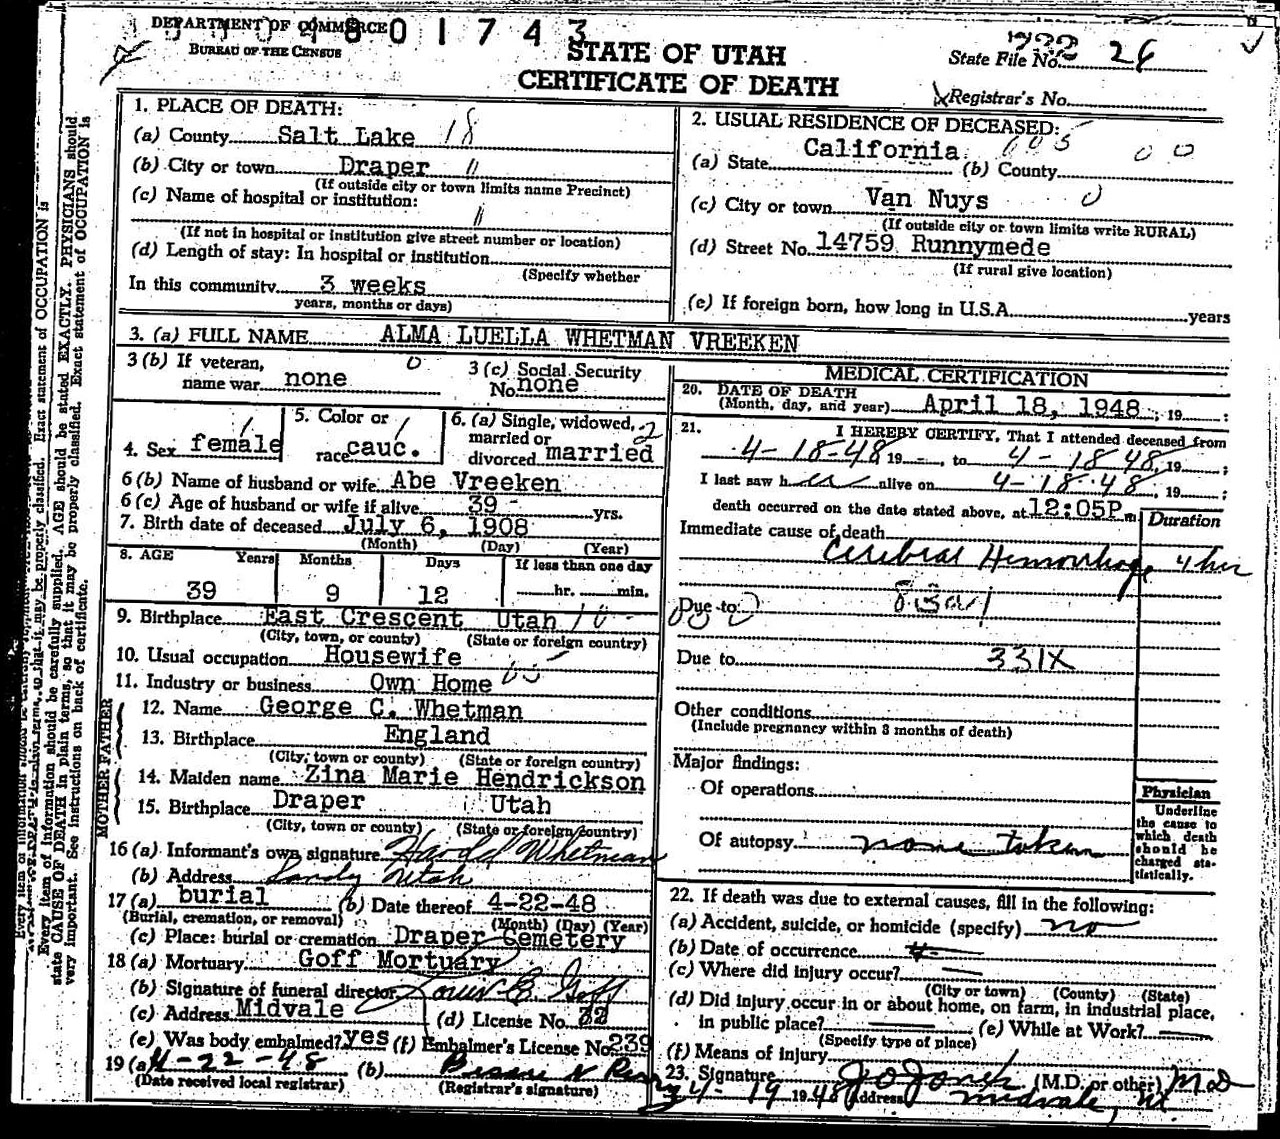 DEPARTMENT OF COMMERCE
BUREAU OF THE CENSUS
801743
STATE OF UTAH
CERTIFICATE OF DEATH
State File No. 26
Registrar's No.
1. PLACE OF DEATH:
(a) County Salt Lake 18
(b) City or town Draper 11
(If outside city or town limits name Precinct)
(c) Name of hospital or institution:
(If not in hospital or institution give street number or location)
(d) Length of stay: In hospital or institution
(Specify whether
In this community 3 weeks
years, months or days)
2. USUAL RESIDENCE OF DECEASED:
(a) State California (b) County
(c) City or town Van Nuys
(If outside city or town limits write RURAL)
(d) Street No. 14759 Runnymede
(If rural give location)
(e) If foreign born, how long in U.S.A. years
3. (a) FULL NAME ALMA LUELLA WHETMAN VREEKEN
3 (b) If veteran, name war none
3 (c) Social Security No. none
4. Sex female
5. Color or race cauc.
6. (a) Single, widowed, married or divorced married
6 (b) Name of husband or wife Abe Vreeken
6 (c) Age of husband or wife if alive 39 yrs.
7. Birth date of deceased July 6, 1908
(Month) (Day) (Year)
8. AGE Years Months Days If less than one day
39 9 12 hr. min.
9. Birthplace East Crescent Utah
(City, town, or county) (State or foreign country)
10. Usual occupation Housewife
11. Industry or business Own Home
FATHER
12. Name George C. Whetman
13. Birthplace England
(City, town or county) (State or foreign country)
MOTHER
14. Maiden name Zina Marie Hendrickson
15. Birthplace Draper Utah
(City, town or county) (State or foreign country)
16 (a) Informant's own signature Harold Whetman
(b) Address Sandy Utah
17 (a) burial (b) Date thereof 4-22-48
(Burial, cremation, or removal) (Month) (Day) (Year)
(c) Place: burial or cremation Draper Cemetery
18 (a) Mortuary Goff Mortuary
(b) Signature of funeral director Louis B. Goff
(c) Address Midvale (d) License No. 32
(e) Was body embalmed? yes (f) Embalmer's License No. 239
19 (a) 4-22-48 (b)
(Date received local registrar) (Registrar's signature)
MEDICAL CERTIFICATION
20. DATE OF DEATH
(Month, day, and year) April 18, 1948, 19 ;
21. I HEREBY CERTIFY, That I attended deceased from
4-18-48, 19 , to 4-18 48, 19 ;
I last saw her alive on 4-18-48, 19 ;
death occurred on the date stated above, at 12:05P m
Duration
Immediate cause of death
Cerebral Hemorrhage 4 hrs
Due to
Due to 331X
Other conditions
(Include pregnancy within 3 months of death)
Major findings:
Of operations
Of autopsy none taken
Physician
Underline
the cause to
which death
should be
charged sta-
tistically.
22. If death was due to external causes, fill in the following:
(a) Accident, suicide, or homicide (specify) no
(b) Date of occurrence
(c) Where did injury occur?
(City or town) (County) (State)
(d) Did injury occur in or about home, on farm, in industrial place,
in public place? (e) While at Work?
(Specify type of place)
(f) Means of injury
23. Signature J O Jones (M.D. or other) MD
4-19 1948 Address Midvale, Ut
Every item of information should be carefully supplied. AGE should be stated EXACTLY. PHYSICIANS should
state CAUSE OF DEATH in plain terms, so that it may be properly classified. Exact statement of OCCUPATION is
very important. See instructions on back of certificate.